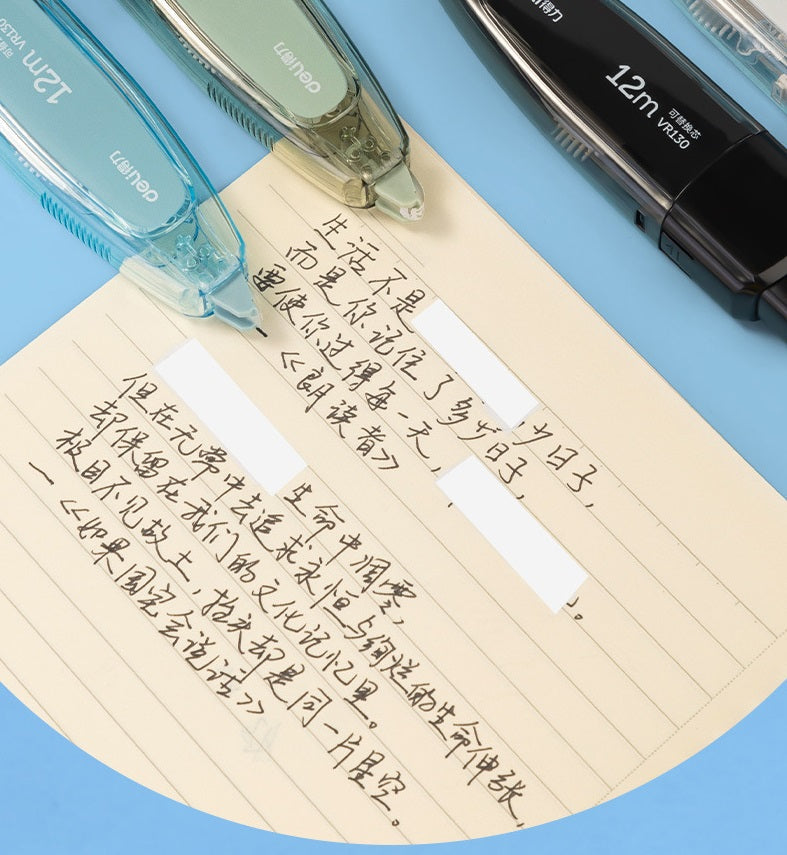 12m
可替换芯
VR130
deli得力
deli得力
得力
12m
可替换芯
VR130
生活不是 少日子,
而是你记住了多少日子,
要使你过得每一天, 。
《朗读者》
生命中凋零,
但在无常中去追求永恒与绚烂的生命伸张,
却保留在我们的文化记忆里。
极目不见故土,抬头却是同一片星空。
一《如果国宝会说话》